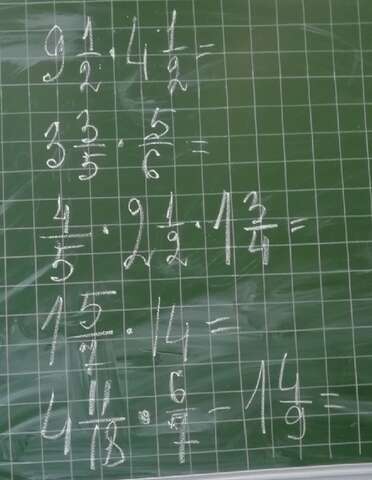 9 1/2 · 4 1/2 =
3 3/5 · 5/6 =
4/5 · 2 1/2 · 1 3/4 =
1 5/7 · 14 =
4 11/18 · 6/7 - 1 4/9 =